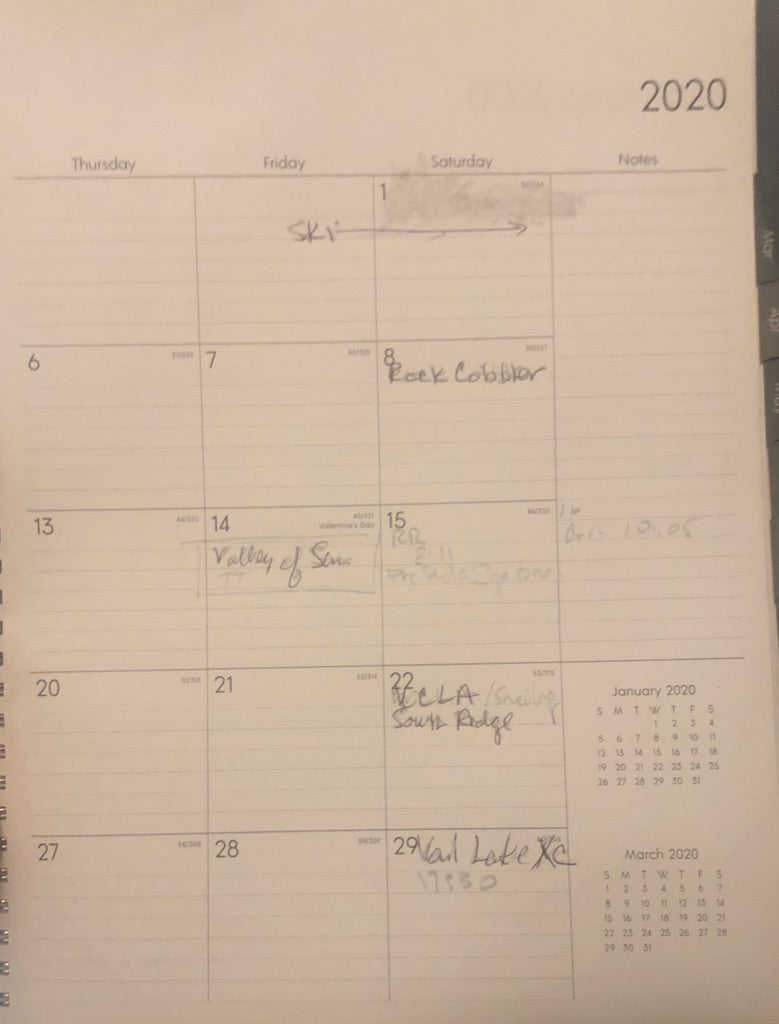 2020
Thursday Friday Saturday Notes
1
Ski
6 7 8
Rock Cobbler
13 14 15
Valentine's Day
Valley of Sun
TT
RR
8:11
10:05
20 21 22
UCLA /Snelling
South Ridge
27 28 29
Vail Lake XC
17:30
January 2020
S M T W T F S
1 2 3 4
5 6 7 8 9 10 11
12 13 14 15 16 17 18
19 20 21 22 23 24 25
26 27 28 29 30 31
March 2020
S M T W T F S
1 2 3 4 5 6 7
8 9 10 11 12 13 14
15 16 17 18 19 20 21
22 23 24 25 26 27 28
29 30 31
Mar
Apr